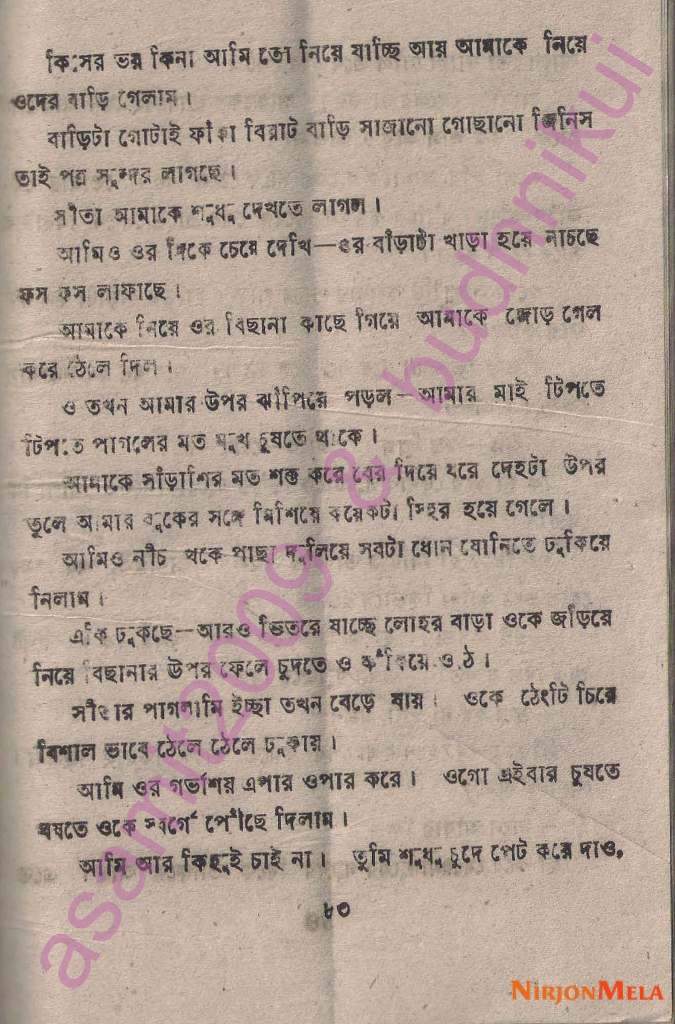 কিসের ভয় কিনা আমি তো নিয়ে যাচ্ছি আয় আমাকে নিয়ে
ওদের বাড়ি গেলাম।
বাড়িটা গোটাই ফাঁকা বিরাট বাড়ি সাজানো গোছানো জিনিস
তাই পত্র সুন্দর লাগছে।
সীতা আমাকে শুধু দেখতে লাগল।
আমিও ওর দিকে চেয়ে দেখি—ওর বাঁড়াটা খাড়া হয়ে নাচছে
ফস ফস লাফাছে।
আমাকে নিয়ে ওর বিছানা কাছে গিয়ে আমাকে জোড় গেল
করে ঠেলে দিল।
ও তখন আমার উপর ঝাঁপিয়ে পড়ল—আমার মাই টিপতে
টিপতে পাগলের মত মুখ চুষতে থাকে।
আমাকে সাঁড়াশির মত শক্ত করে বের দিয়ে ধরে দেহটা উপর
তুলে আমার বুকের সঙ্গে মিশিয়ে কয়েকটা স্থির হয়ে গেলে।
আমিও নীচ থকে পাছা দুলিয়ে সবটা ধোন যোনিতে ঢুকিয়ে
নিলাম।
একি ঢুকছে—আরও ভিতরে যাচ্ছে লোহর বাড়া ওকে জড়িয়ে
নিয়ে বিছানার উপর ফেলে চুদতে ও
সীতার পাগলামি ইচ্ছা তখন বেড়ে যায়। ওকে ঠেংটি চিরে
বিশাল ভাবে ঠেলে ঠেলে ঢুকায়।
আমি ওর গর্ভাশয় এপার ওপার করে। ওগো এইবার চুষতে
ওকে স্বর্গে পৌঁছে দিলাম।
আমি আর কিছুই চাই না। তুমি শুধু চুদে পেট করে দাও,
৮৩
asamit2009 & budhhikui
NIRJONMELA